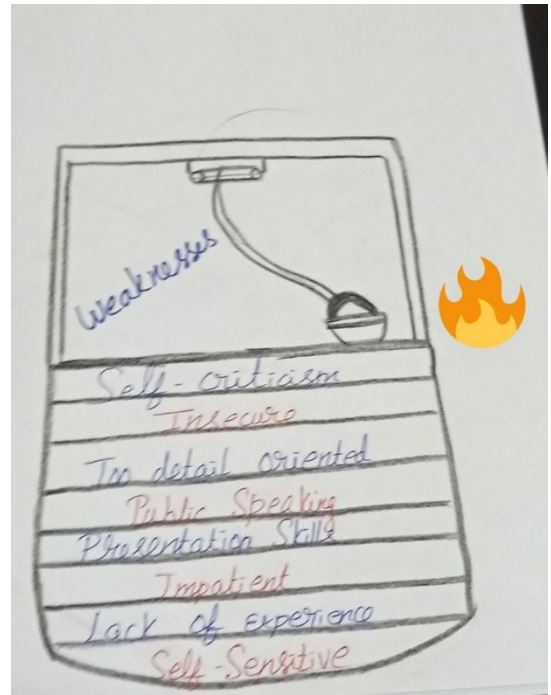 Weaknesses
Self-criticism
Insecure
Too detail oriented
Public Speaking
Presentation Skills
Impatient
Lack of Experience
Self-Sensitive